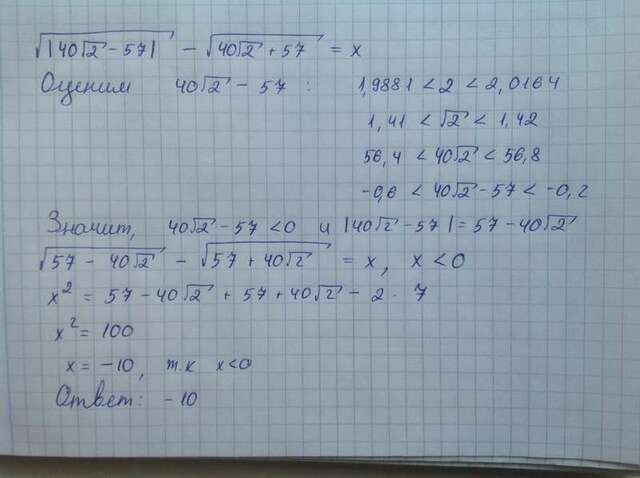 √|40√2 - 57| - √40√2 + 57 = x
Оценим 40√2 - 57 : 1,9881 < 2 < 2,0164
1,41 < √2 < 1,42
56,4 < 40√2 < 56,8
-0,6 < 40√2 - 57 < -0,2
Значит, 40√2 - 57 < 0 и |40√2 - 57| = 57 - 40√2
√57 - 40√2 - √57 + 40√2 = x, x < 0
x² = 57 - 40√2 + 57 + 40√2 - 2 · 7
x² = 100
x = -10, т.к x<0
Ответ: -10